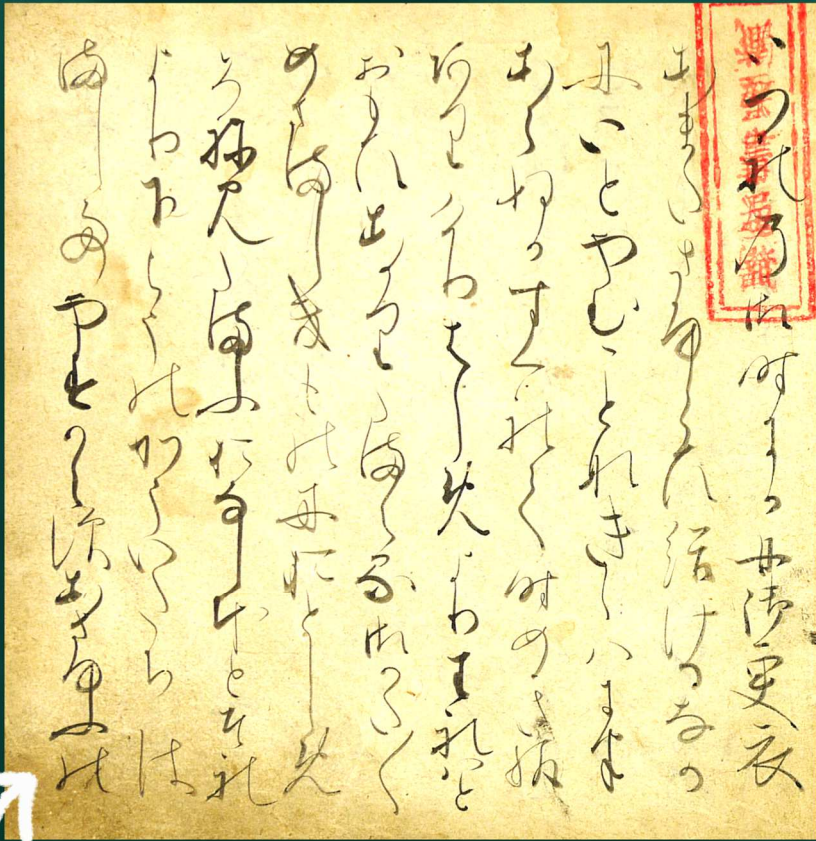 いつれの御時にか女御更衣
あまたさふらひ給けるなか
にいとやむことなきゝハには
あらぬかすくれて時めき給
ありけりはしめよりわれはと
おもひあかりたまへる御かた〳〵
めさましきものにおとしめ
そねみたまふおなしほとそれ
より下らうのかういたちは
ましてやすからすあさゆふの